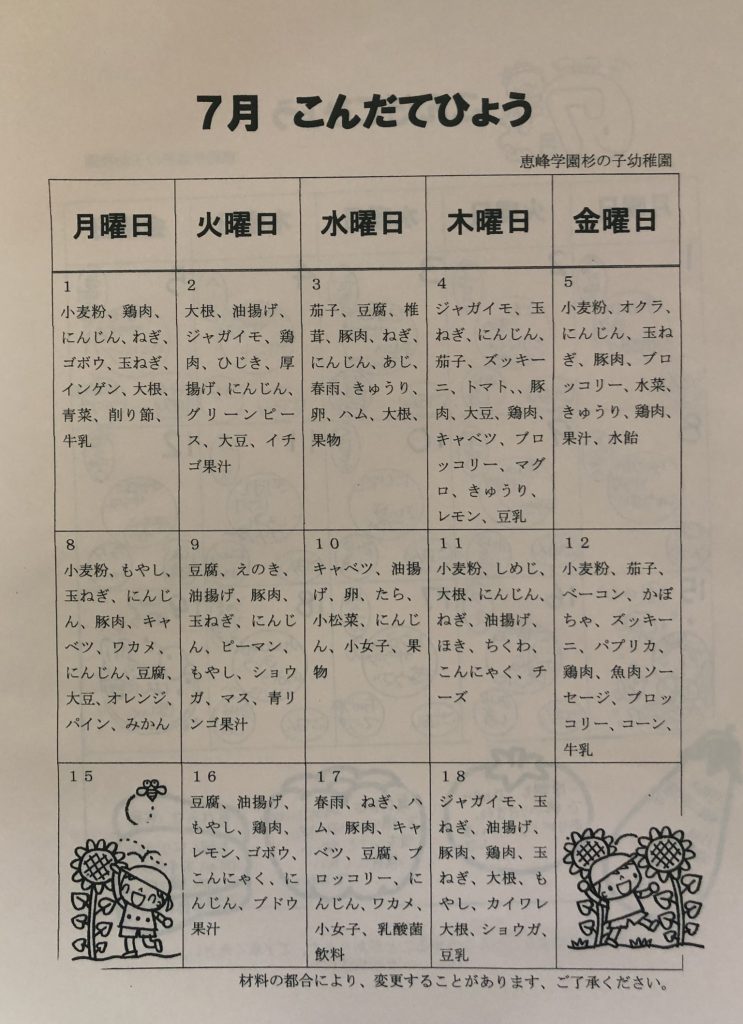 7月 こんだてひょう
恵峰学園杉の子幼稚園
月曜日
火曜日
水曜日
木曜日
金曜日
1
小麦粉、鶏肉、
にんじん、ねぎ、
ゴボウ、玉ねぎ、
インゲン、大根、
青菜、削り節、
牛乳
2
大根、油揚げ、
ジャガイモ、鶏
肉、ひじき、厚
揚げ、にんじん、
グリーンピー
ス、大豆、イチ
ゴ果汁
3
茄子、豆腐、椎
茸、豚肉、ねぎ、
にんじん、あじ、
春雨、きゅうり、
卵、ハム、大根、
果物
4
ジャガイモ、玉
ねぎ、にんじん、
茄子、ズッキー
ニ、トマト、、豚
肉、大豆、鶏肉、
キャベツ、ブロ
ッコリー、マグ
ロ、きゅうり、
レモン、豆乳
5
小麦粉、オクラ、
にんじん、玉ね
ぎ、豚肉、ブロ
ッコリー、水菜、
きゅうり、鶏肉、
果汁、水飴
8
小麦粉、もやし、
玉ねぎ、にんじ
ん、豚肉、キャ
ベツ、ワカメ、
にんじん、豆腐、
大豆、オレンジ、
パイン、みかん
9
豆腐、えのき、
油揚げ、豚肉、
玉ねぎ、にんじ
ん、ピーマン、
もやし、ショウ
ガ、マス、青リ
ンゴ果汁
10
キャベツ、油揚
げ、卵、たら、
小松菜、にんじ
ん、小女子、果
物
11
小麦粉、しめじ、
大根、にんじん、
ねぎ、油揚げ、
ほき、ちくわ、
こんにゃく、チ
ーズ
12
小麦粉、茄子、
ベーコン、かぼ
ちゃ、ズッキー
ニ、パプリカ、
鶏肉、魚肉ソー
セージ、ブロッ
コリー、コーン、
牛乳
15
16
豆腐、油揚げ、
もやし、鶏肉、
レモン、ゴボウ、
こんにゃく、に
んじん、ブドウ
果汁
17
春雨、ねぎ、ハ
ム、豚肉、キャ
ベツ、豆腐、ブ
ロッコリー、に
んじん、ワカメ、
小女子、乳酸菌
飲料
18
ジャガイモ、玉
ねぎ、油揚げ、
豚肉、鶏肉、玉
ねぎ、大根、も
やし、カイワレ
大根、ショウガ、
豆乳
材料の都合により、変更することがあります、ご了承ください。